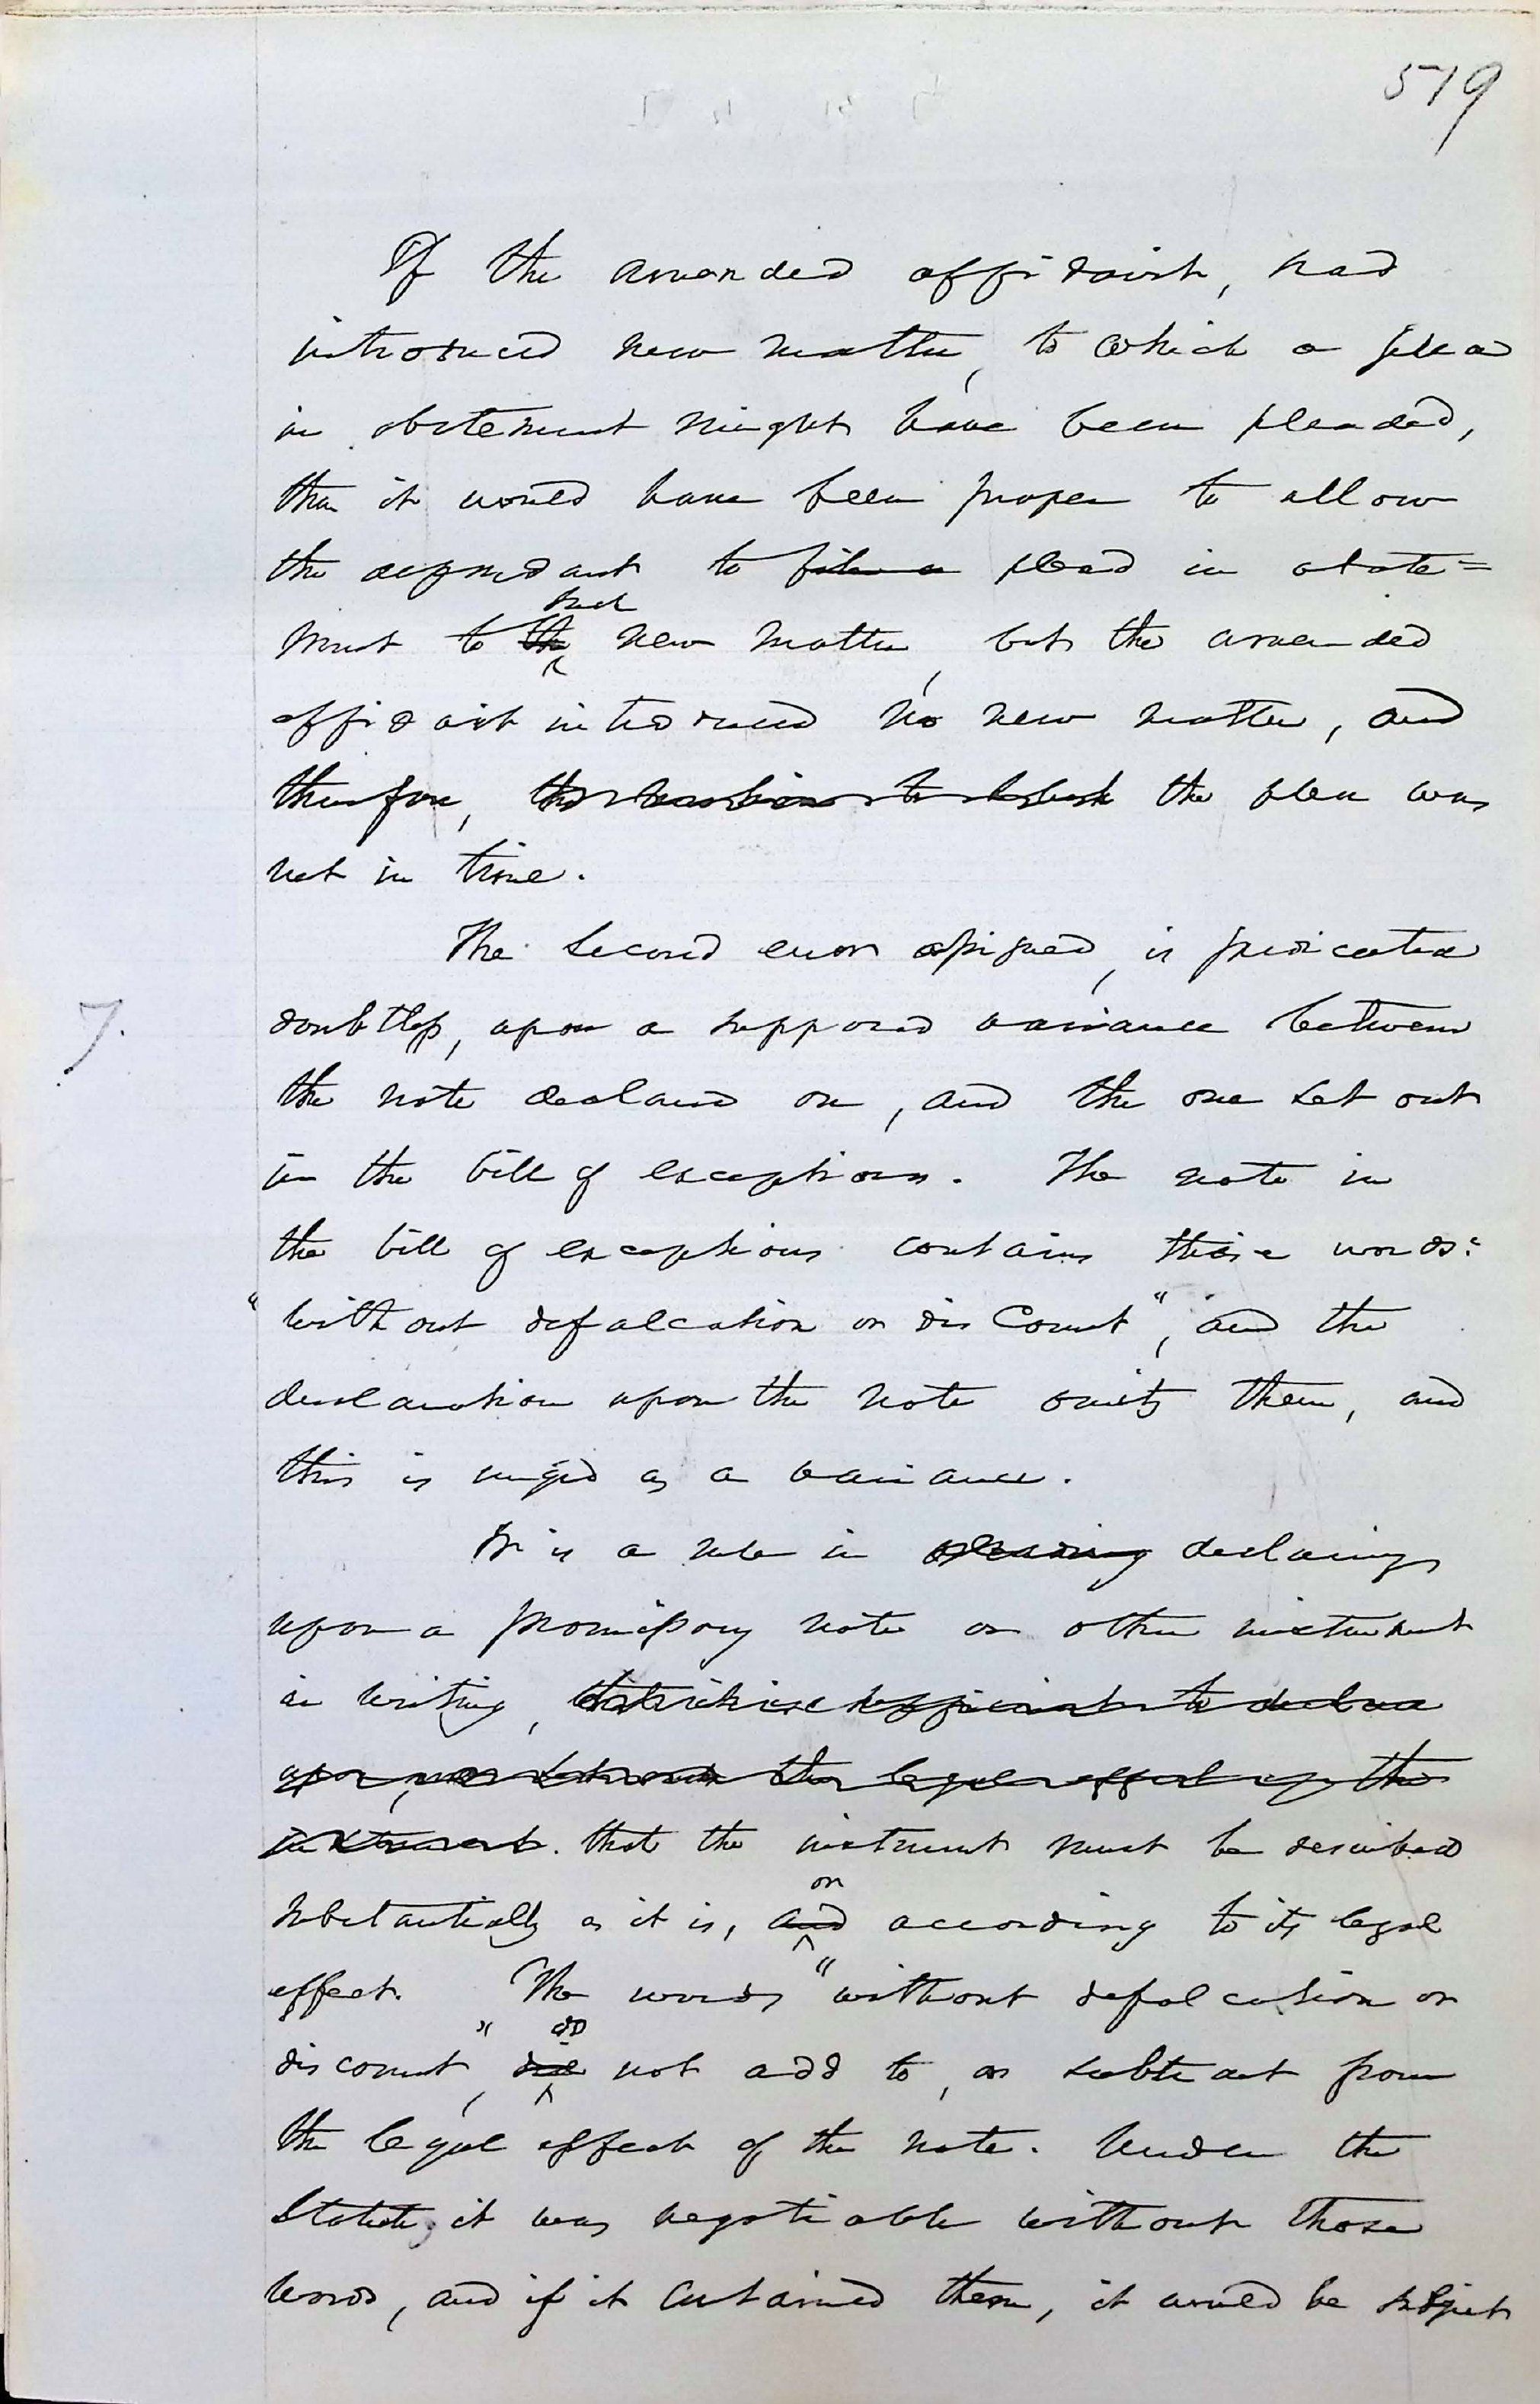 519
If the amended affidavit, had
introduced new matter, to which a plea
in abatement might have been pleaded,
then it would have been proper to allow
the defendant to file a plead in abate=
such
ment to the new matter, but the amended
affidavit introduced no new matter, and
therefore, the motion to the plea was
not in time.
The second error assigned, is predicated
7.
doubtless, upon a supposed variance between
the note declared on, and the one set out
in the bill of exceptions. The note in
the bill of exceptions contains these words:
"without defalcation or discount", and the
declaration upon the note omits them, and
this is urged as a variance.
It is a rule in pleading declaring
upon a promissory note or other instrument
in writing, sufficient to declare
upon, the legal effect of the
instrument. that the instrument must be described
or
substantially as it is, and according to its legal
effect. The words "without defalcation or
do
discount", did not add to, or subtract from
the legal effect of the note. Under the
Statute, it was negotiable without those
words, and if it contained them, it would be subject